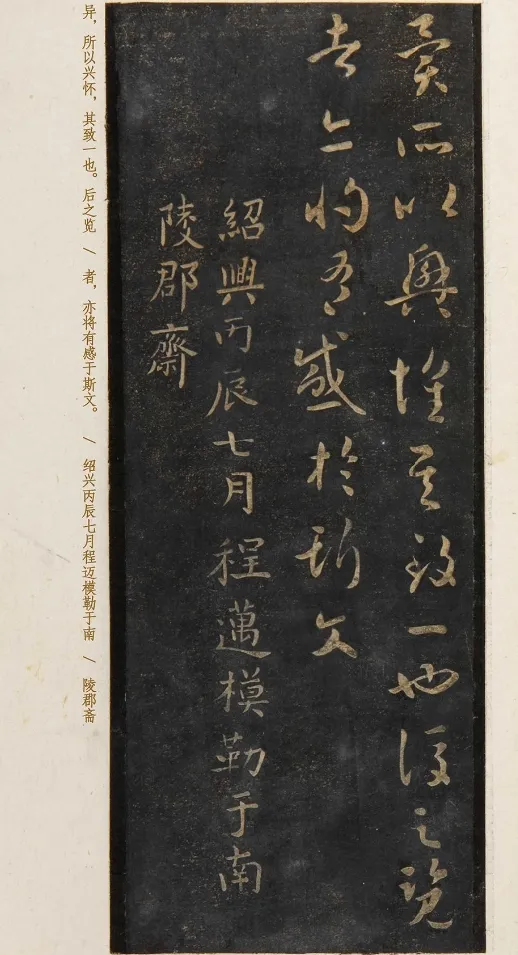 異所以興懷其致一也後之覽
者亦將有感於斯文
紹興丙辰七月程邁模勒于南
陵郡齋
异，所以兴怀，其致一也。后之览 / 者，亦将有感于斯文。 / 绍兴丙辰七月程迈模勒于南 / 陵郡斋